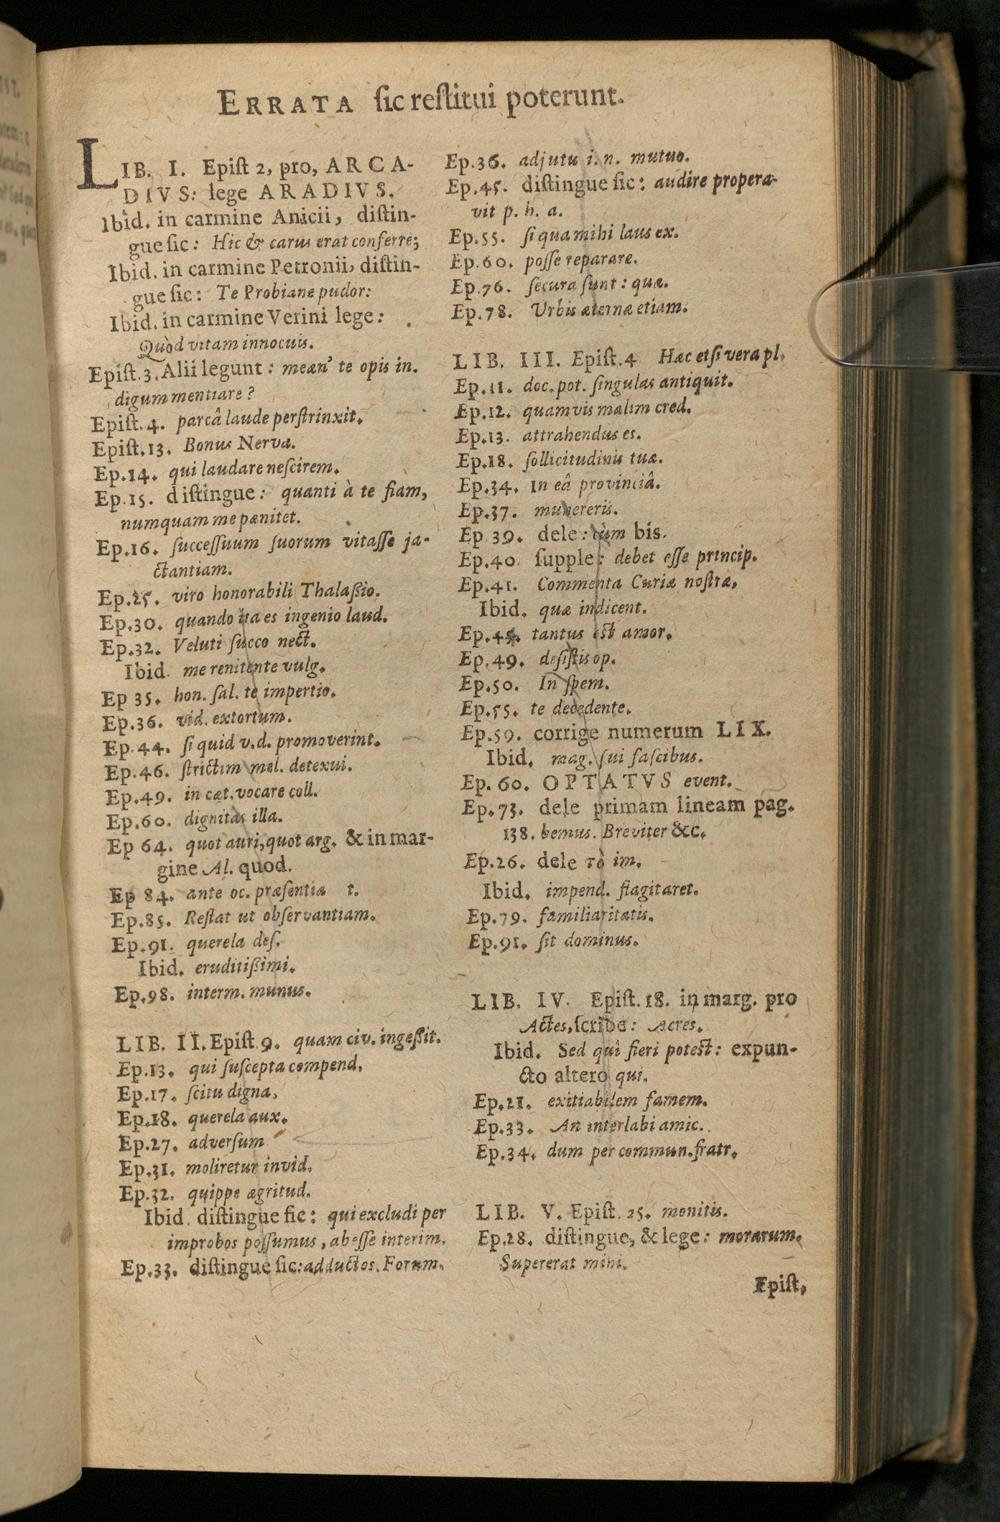 ERRATA sic restitui poterunt.
LIB. I. Epist 2, pro, ARCA-
DIVS: lege ARADIVS.
Ibid. in carmine Anicii, distin-
gue sic: Hic & carus erat conferre;
Ibid. in carmine Petronii, distin-
gue sic: Te Probiane pudor:
Ibid. in carmine Verini lege:
Quòd vitam innocuis.
Epist. 3. Alii legunt: mean' te opis in.
digum mentiare?
Epist. 4. parcâ laude perstrinxit.
Epist. 13. Bonus Nerva.
Ep. 14. qui laudare nescirem.
Ep. 15. distingue: quanti à te fiam,
numquam me pænitet.
Ep. 16. successuum suorum vitasse ja-
ctantiam.
Ep. 25. viro honorabili Thalassio.
Ep. 30. quando ita es ingenio laud.
Ep. 32. Veluti succo nect.
Ibid. me renitente vulg.
Ep 35. hon. sal. te impertio.
Ep. 36. vid. extortum.
Ep. 44. si quid v. d. promoverint.
Ep. 46. strictim mel. detexui.
Ep. 49. in cæt. vocare coll.
Ep. 60. dignitas illa.
Ep 64. quot auri, quot arg. & in mar-
gine Al. quod.
Ep 84. ante oc. præsentia t.
Ep. 85. Restat ut observantiam.
Ep. 91. querela des.
Ibid. eruditissimi.
Ep. 98. interm. munus.
LIB. II. Epist. 9. quam civ. ingessit.
Ep. 13. qui suscepta compend.
Ep. 17. scitu digna,
Ep. 18. querela aux.
Ep. 27. adversum
Ep. 31. moliretur invid.
Ep. 32. quippe ægritud.
Ibid. distingue sic: qui excludi per
improbos possumus, abesse interim.
Ep. 33. distingue sic: adductos. Forum.
Ep. 36. adjutu i. n. mutuo.
Ep. 45. distingue sic: audire propera-
vit p. h. a.
Ep. 55. si qua mihi laus ex.
Ep. 60. posse reparare.
Ep. 76. secura sunt: quæ.
Ep. 78. Urbis æternæ etiam.
LIB. III. Epist. 4 Hæc etsi vera pl.
Ep. 11. doc. pot. singulas antiquit.
Ep. 12. quamvis malim cred.
Ep. 13. attrahendus es.
Ep. 18. sollicitudinis tuæ.
Ep. 34. In eâ provinciâ.
Ep. 37. munereris.
Ep. 39. dele: tùm bis.
Ep. 40. supple: debet esse princip.
Ep. 41. Commenta Curiæ nostræ,
Ibid. quæ indicent.
Ep. tantus est amor.
Ep. 49. desistis op.
Ep. 50. In spem.
Ep. 55. te decedente.
Ep. 59. corrige numerum LIX.
Ibid. mag. sui fascibus.
Ep. 60. OPTATVS event.
Ep. 73. dele primam lineam pag.
138. bemus. Breviter &c.
Ep. 26. dele τὸ im.
Ibid. impend. flagitaret.
Ep. 79. familiaritatis.
Ep. 91. sit dominus.
LIB. IV. Epist. 18. in marg. pro
Actes, scribe: Acres.
Ibid. Sed quì fieri potest: expun-
cto altero qui.
Ep. 21. exitiabilem famem.
Ep. 33. An interlabi amic.
Ep. 34. dum per commun. fratr.
LIB. V. Epist. 25. monitis.
Ep. 28. distingue, & lege: morarum.
Supererat mihi.
Epist.